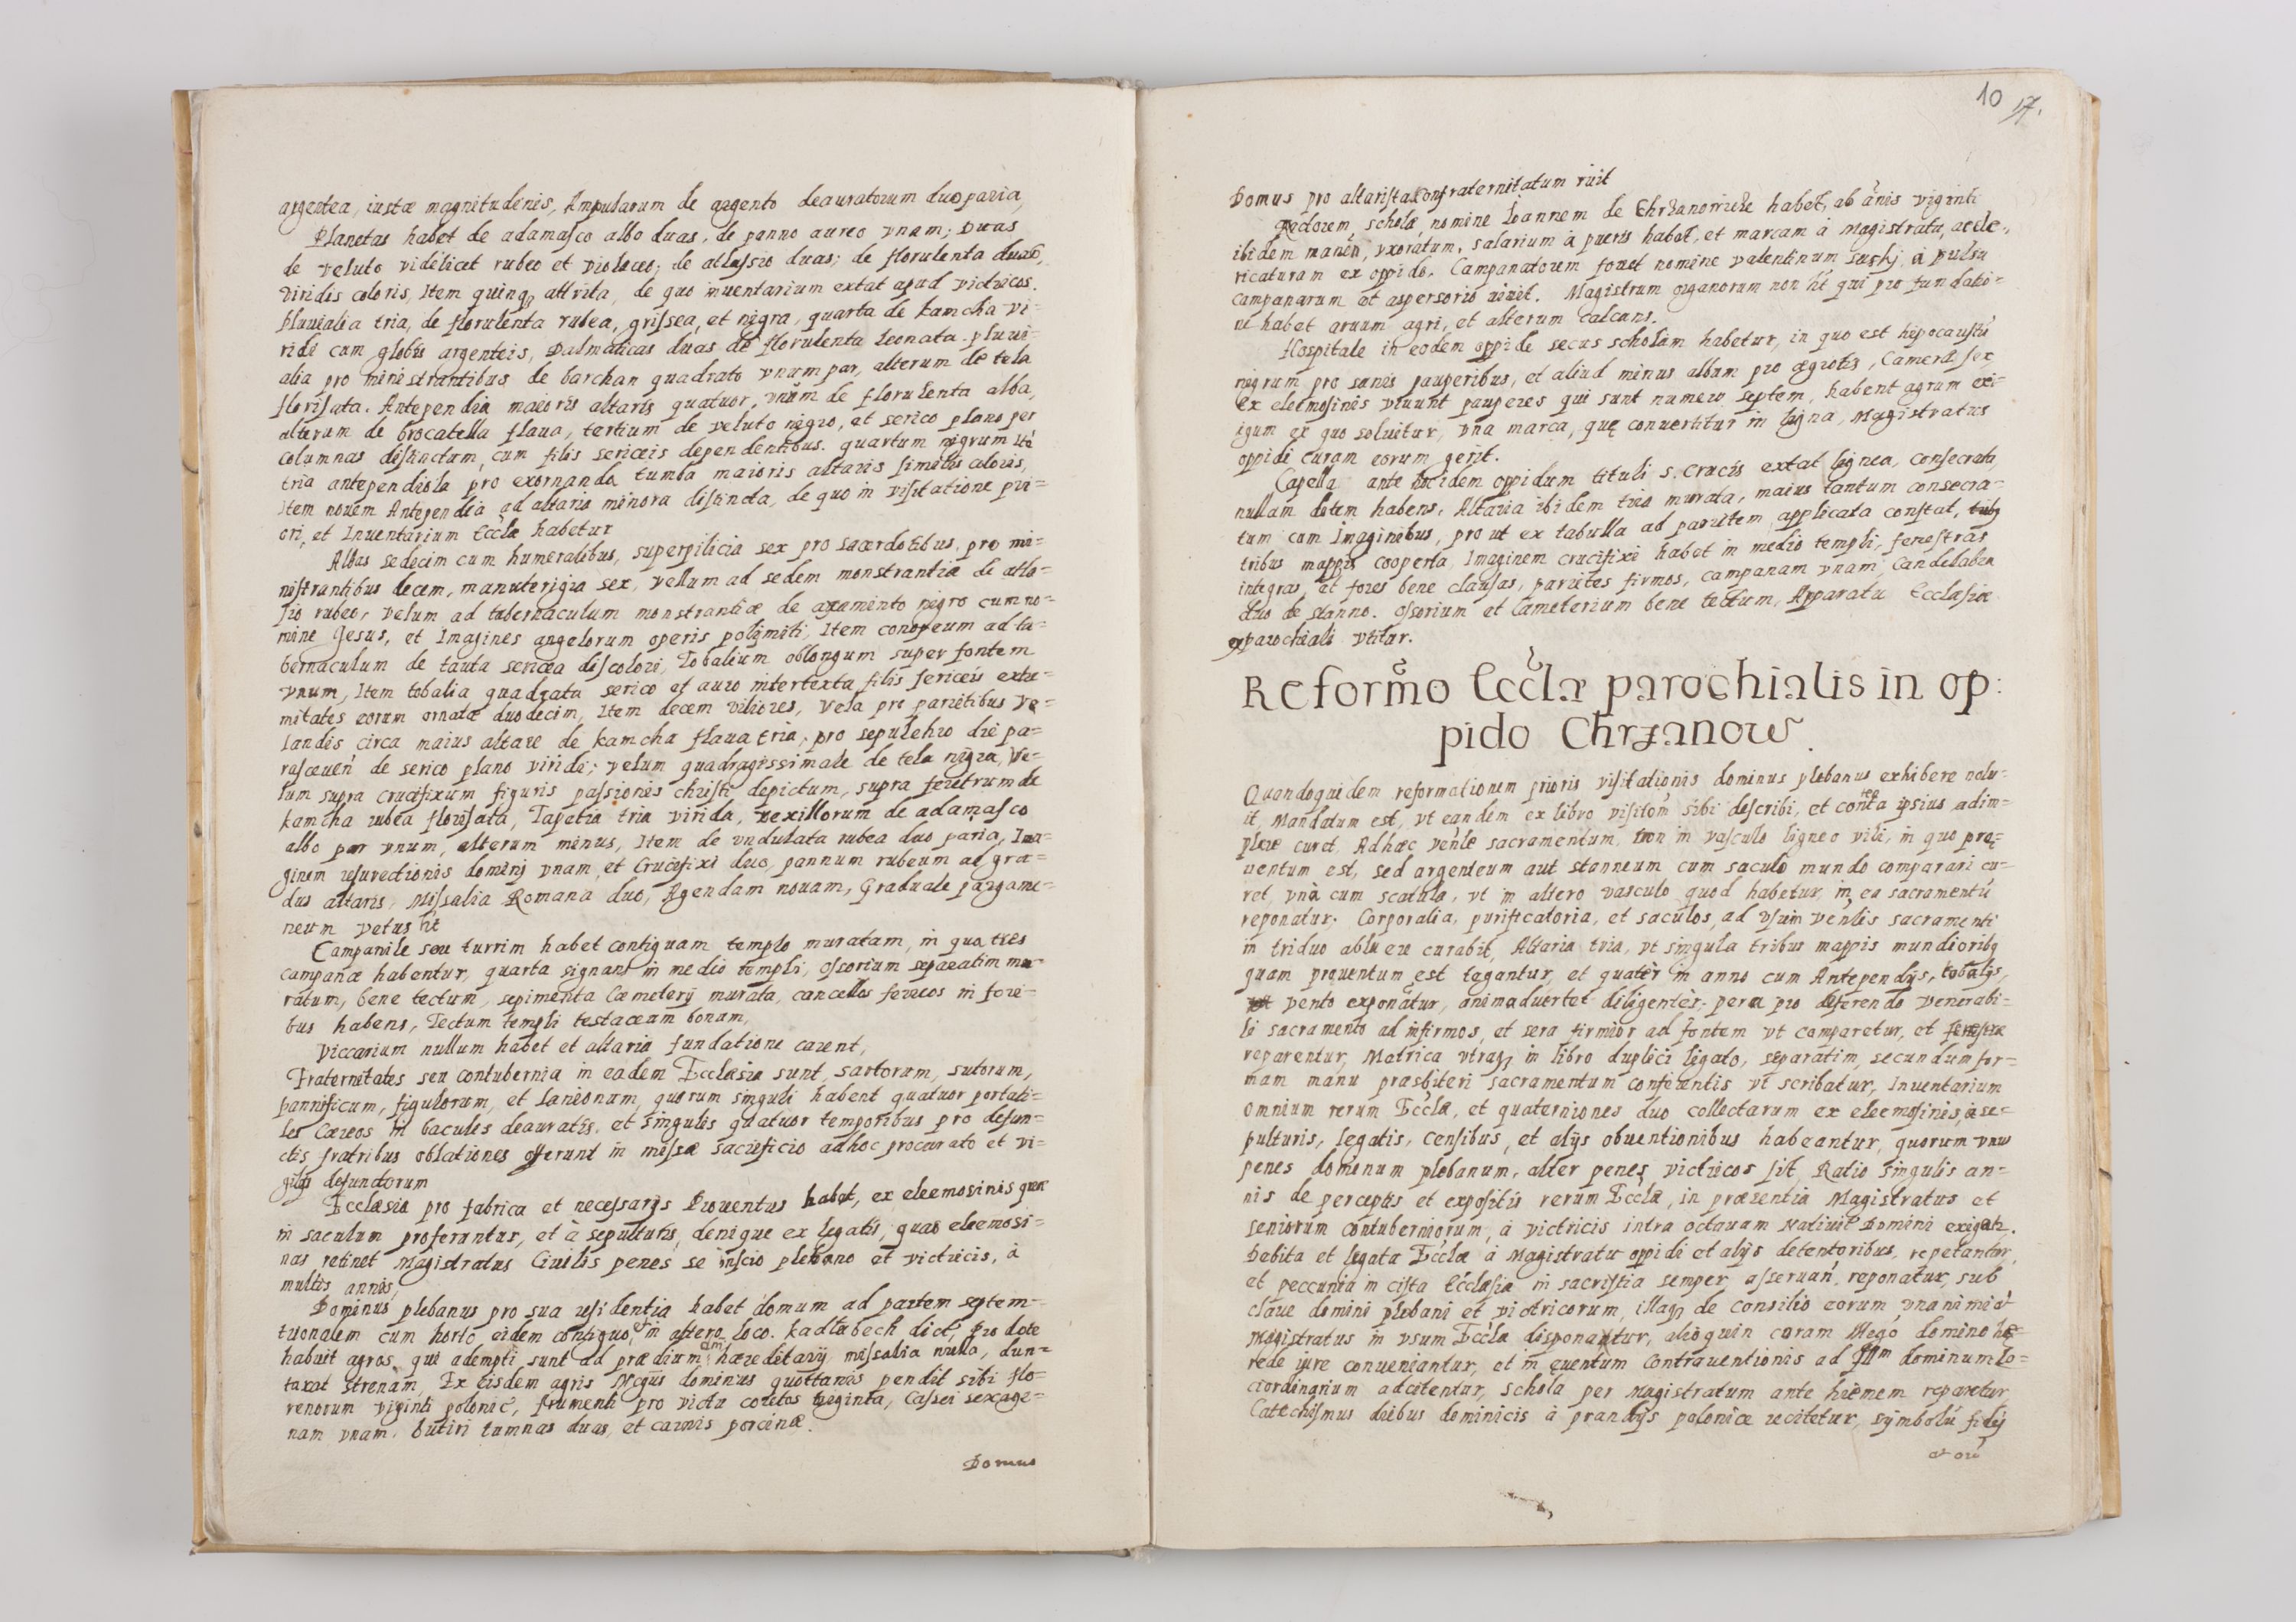 argentea, iustæ magnitudinis, Ampularum de argento deauratorum duo paria,
Planetas habet de adamasco albo duas, de panno aureo vnam; Duas
de veluto videlicet rubeo et violaceo; de atlassio duas; de florulenta duas,
viridis coloris, Item quinq3 attrita, de quo inuentarium extat apud victricos.
Pluuialia tria, de florulenta rubea, grissea, et nigra, quarta de kamcha vi=
ride cum globis argenteis, Dalmaticas duas de florulenta leonata. pluui=
alia pro ministrantibus de barchan quadrato vnum par, alterum de tela
florisata. Antependia maioris altaris quatuor, vnum de florulenta alba,
alterum de brocatella flaua, tertium de veluto nigro, et serico plano per
columnas distinctum, cum filis sericeis dependentibus. quartum nigrum Itē
tria antependiola pro exornanda tumba maioris altaris similis coloris,
Item nouem Antependia ad altaria minora distincta, de quo in visitatione pri=
ori, et Inuentarium Eccłæ habetur
Albas sedecim cum humeralibus, superpilicia sex pro sacerdotibus, pro mi=
nistrantibus decem, manuterigia sex, vellum ad sedem monstrantiæ de atla=
sio rubeo, velum ad tabernaculum monstrantiæ de axamento nigro cum no=
mine Jesus, et Imagines angelorum operis polimiti, Item conopeum ad ta=
bernaculum de tauta sericea discolori, Tobalium oblongum super fontem
vnum, Item tobalia quadrata serico et auro intertexta filis sericeis extre=
mitates eorum ornatæ duodecim, Item decem viliores, Vela pro parietibus ve=
landis circa maius altare de kamcha flaua tria, pro sepulchro die pa=
rasceueń de serico plano viridi; velum quadragissimale de tela nigra, Ve=
lum supra crucifixum figuris passionis christi depictum, supra feretrum de
kamcha rubea florisata, Tapetia tria virida, vexillorum de adamasco
albo par vnum, alterum minus, Item de vndulata rubea duo paria, Ima=
ginem resurectionis dominj vnam, et Crucifixi duo, pannum rubeum ad gra=
dus altaris, Missalia Romana duo, Agendam nouam, Graduale pargame=
neum vetus ht
Campanile seu turrim habet contiguam templo muratam, in qua tres
campanæ habentur, quarta signans in medio templi, Ossorium separatim mu=
ratum, bene tectum, sepimenta Cæmeterij murata, cancellos ferreos in fori=
bus habens, Tectum templi testaceum bonum,
Viccarium nullum habet et altaria fundatione carent,
Fraternitates seu contubernia in eadem Ecclæsia sunt, sartorum, sutorum,
pannificum, figulorum, et lanionum, quorum singuli habent quatuor portati=
les cæreos in baculis deauratis, et singulis quatuor temporibus pro defun=
ctis fratribus oblationes offerunt in missæ sacrificio adhoc procurato et vi=
gilijs defunctorum
Ecclæsia pro fabrica et necessarijs Prouentus habet, ex eleemosinis quæ
in saculum proferuntur, et à sepulturis, denique ex legatis, quas eleemosi=
nas retinet Magistratus Ciuilis penes se inscio plebano et victricis, à
multis annis,
Dominus plebanus pro sua residentia habet domum ad partem septem=
trionalem cum horto eidem contiguo, et in altero loco. Kadłubech dict, Pro dote
habuit agros, qui adempti sunt ad prædium dńi hæreditarij missalia nulla, dun=
taxat strenam, Ex eisdem agris Mĝcus dominus quottannis pendit sibi flo=
renorum viginti polonic̄, frumenti pro victu coretos triginta, Cassei sexage=
nam vnam, butiri tumnas duas, et carnis porcinæ.
Domus
10 17.
Domus pro altarista confraternitatum ruit
Rectorem scholæ, nomine Ioannem de Chrzanowicze habet, ab ānis viginti
ibidem maneñ, vxoratum, salarium à pueris habet, et marcam à Magistratu, ac cle=
ricaturam ex oppido. Campanatorem fouet nomine valentinum Suskj, à pulsu
campanarum et aspersorio viuit. Magistrum organorum non ht qui pro fundatio=
ne habet aruum agri, et alterum calcans.
Hospitale in eodem oppido secus scholam habetur, in quo est hipocaustū
nigrum pro sanis pauperibus, et aliud minus album pro ægrotis, Cameræ sex
Ex eleemosinis viuunt pauperes qui sunt numero septem, habent agrum exi=
igum ex quo soluitur, vna marca, quę conuertitur in ligna, Magistratus
oppidi curam eorum gerit.
Capella ante ibidem oppidum tituli S. Crucis extat lignea, consecrata
nullam dotem habens, Altaria ibidem tria murata, maius tantum consecra=
tum cum Imaginibus, pro ut ex tabulla ad parietem applicata constat,
tribus mappis cooperta, Imaginem crucifixi habet in medio templi, fenestras
integras, et fores bene clausas, parietes firmos, campanam vnam, Candelabra
duo de stanno. Ossorium et Cæmeterium bene tectum, Apparatu Ecclæsiæ
parochialis vtitur.
Reformõ Eccłæ parochialis in op:
pido Chrzanow.
Quandoquidem reformationem prioris visitationis dominus plebanus exhibere nolu=
it, Mandatum est, vt eandem ex libro visitom̄ sibi describi, et contenta ipsius adim=
plere curet. Adhæc venłe sacramentum, non in vasculo ligneo vili, in quo pro=
uentum est, sed argenteum aut stanneum cum saculo mundo comparari cu=
ret, vnà cum scatula, vt in altero vasculo quod habetur, in ea sacramentū
reponatur. Corporalia, purificatoria, et saculos, ad vsum venłis sacramenti
in triduo abluere curabit, Altaria tria, vt singula tribus mappis mundiorib9
quam prouentum est tegantur, et quatèr in anno cum Antependijs, tobalijs,
vento exponātur, animaduertet diligenter, pera pro deferendo venerabi=
li sacramento ad infirmos, et sera firmior ad fontem vt comparetur, et fenestræ
reparentur, Matrica vtraq3 in libro duplici ligato, separatim, secundum for=
mam manu præsbiteri sacramentum conferentis vt scribatur, Inuentarium
omnium rerum Eccłæ, et quaterniones duo collectarum ex eleemosinis, à se=
pulturis, legatis, censibus, et alijs obuentionibus habeantur, quorum vnus
penes dominum plebanum, alter penes victricos sit, Ratio singulis an=
nis de perceptis et expositis rerum Eccłæ, in præsentia Magistratus et
seniorum contuberniorum, à victricis intra octauam Natiuit̄ Domini exigatr.
Debita et legata Eccłæ à Magistratu oppidi et alijs detentoribus, repetantur,
et peccunia in cista Ecclæsiæ in sacristia semper asseruań, reponatur, sub
claue domini plebani et victricorum, illaq3 de consilio eorum vnanimi à
Magistratus in vsum Eccłæ disponantur, alioquin coram Mĝco domino hæ=
rede iure conueniantur, et in euentum contrauentionis ad Illm dominum lo=
ciordinarium adcitentur, schola per Magistratum ante hiemem reparetur
Catechismus diebus dominicis à prandijs polonicæ recitetur, sÿmbolū fidej
et orō